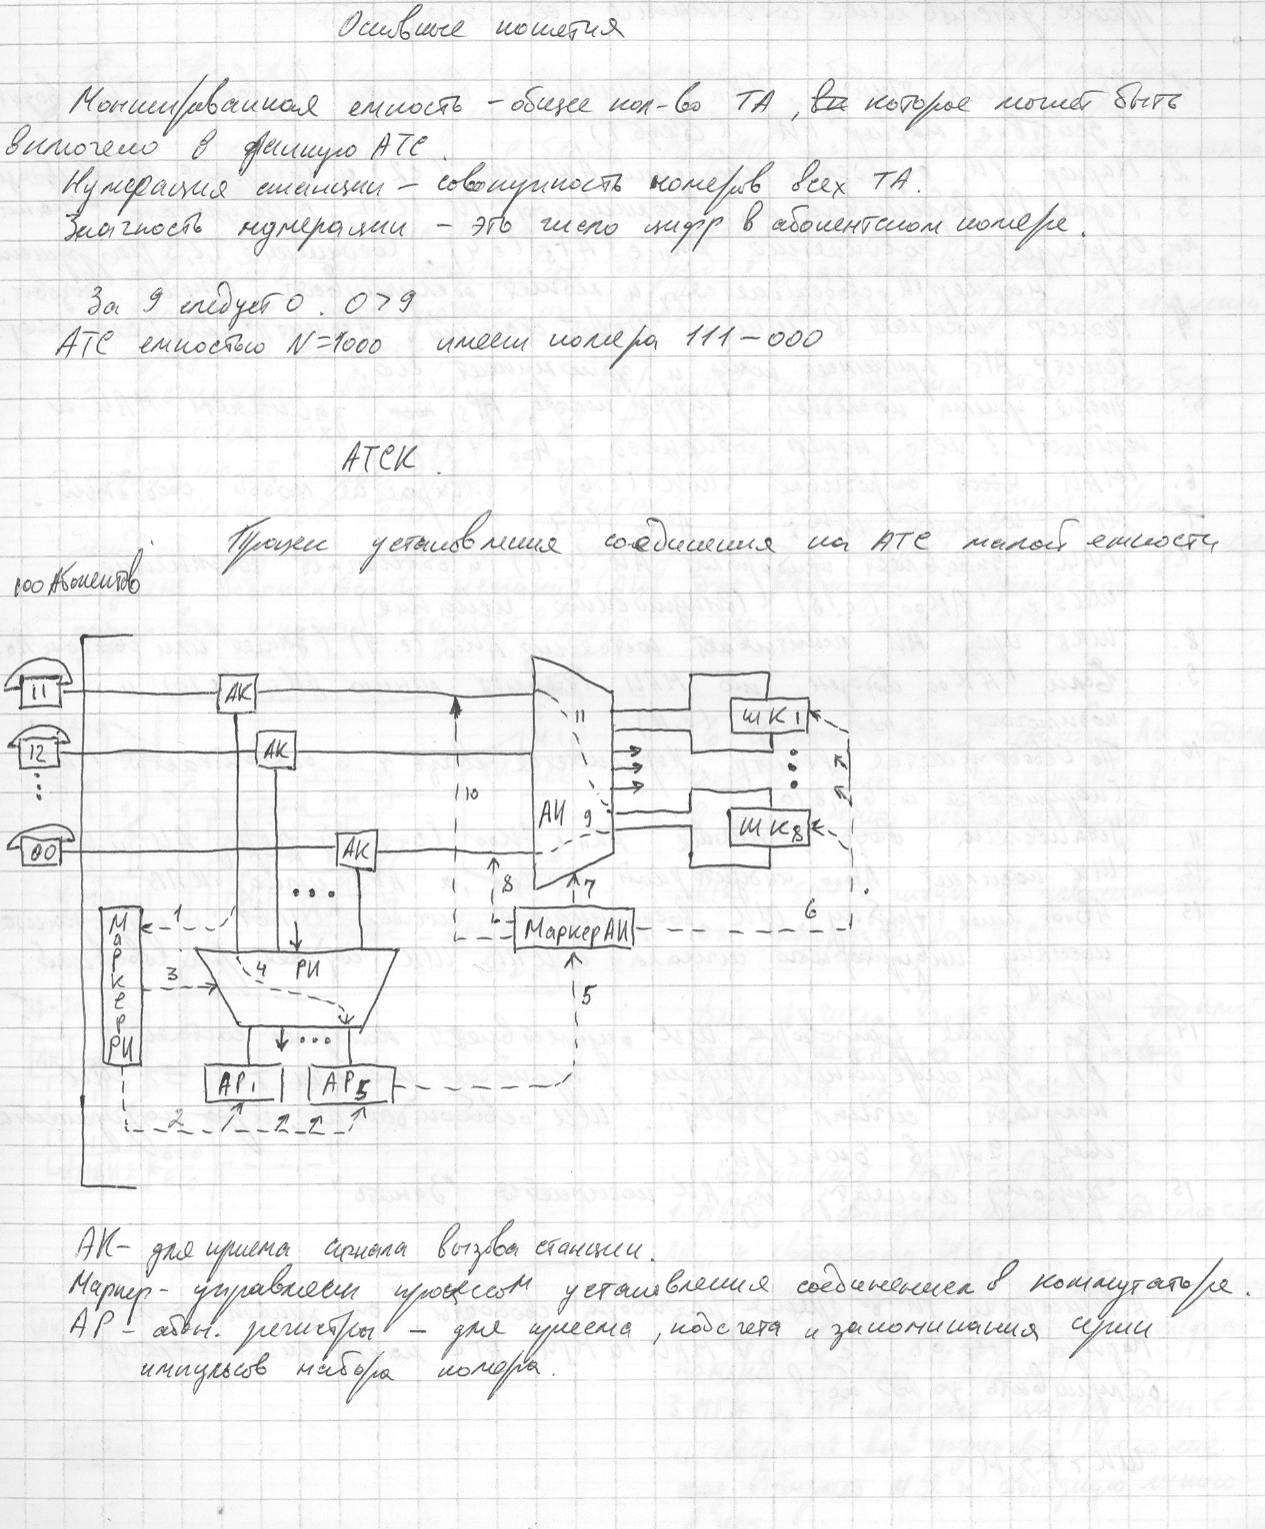 Основные понятия
Монтированная емкость – общее кол-во ТА, которое может быть
включено в данную АТС.
Нумерация станции – совокупность номеров всех ТА.
Значность нумерации – это число цифр в абонентском номере.
За 9 следует 0. 0>9
АТС емкостью N=1000 имеет номера 111–000
АТСК
Процесс установления соединения на АТС малой емкости
100 Абонентов
11
АК
11
ШК1
12
АК
10
АИ
9
00
АК
ШК8
8
7
Маркер РИ
1
МаркерАИ
6
3
4
РИ
5
АР1
АР5
2
АК – для приема сигнала вызова станции.
Маркер – управляет процессом установления соединением в коммутаторе.
АР – абон. регистры – для приема, подсчета и запоминания серии
импульсов набора номера.